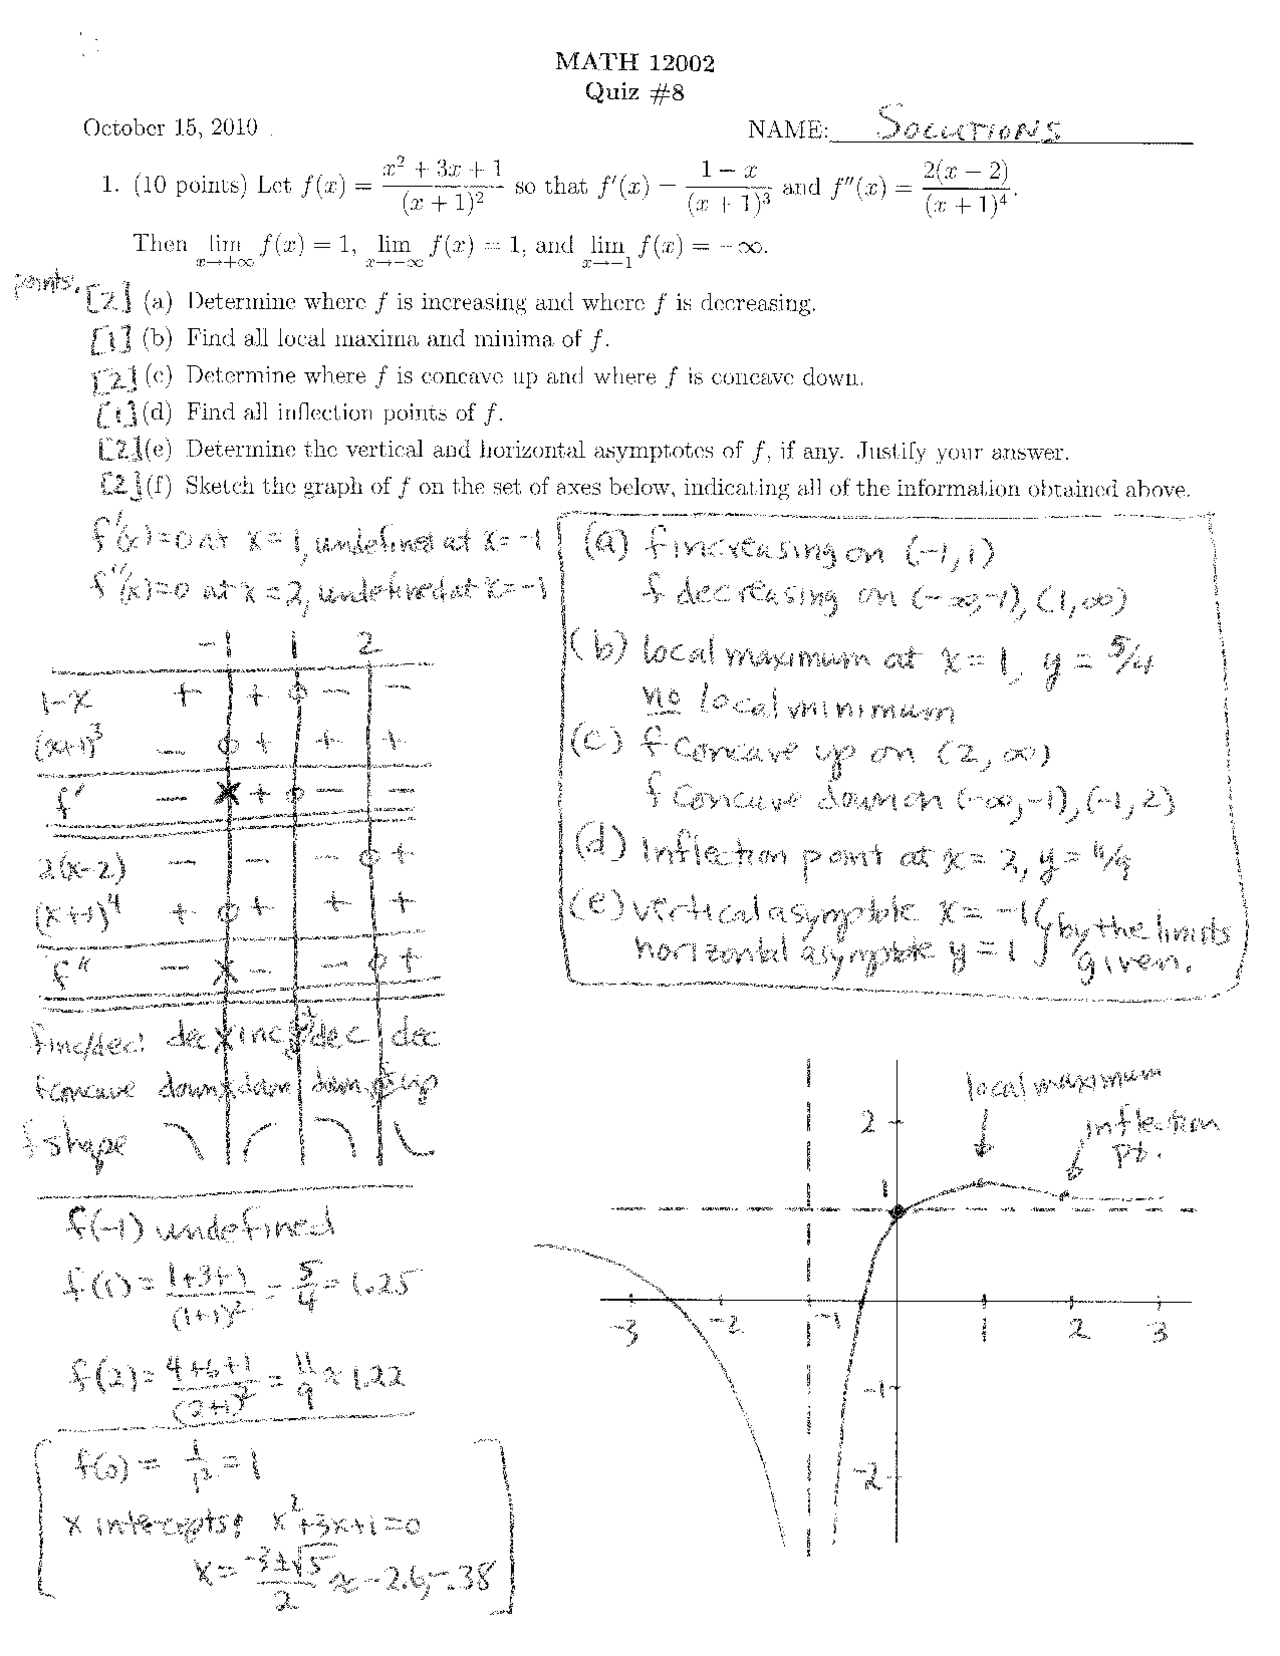 MATH 12002
Quiz #8
October 15, 2010 NAME: SOLUTIONS
1. (10 points) Let f(x) = (x² + 3x + 1)/(x + 1)² so that f′(x) = (1 − x)/(x + 1)³ and f″(x) = 2(x − 2)/(x + 1)⁴.
Then lim x→+∞ f(x) = 1, lim x→−∞ f(x) = 1, and lim x→−1 f(x) = −∞.
points.
[2] (a) Determine where f is increasing and where f is decreasing.
[1] (b) Find all local maxima and minima of f.
[2] (c) Determine where f is concave up and where f is concave down.
[1] (d) Find all inflection points of f.
[2] (e) Determine the vertical and horizontal asymptotes of f, if any. Justify your answer.
[2] (f) Sketch the graph of f on the set of axes below, indicating all of the information obtained above.
f′(x)=0 at x=1, undefined at x=-1
f″(x)=0 at x=2, undefined at x=-1
-1 1 2
1-x + + 0 - -
(x+1)³ - 0 + + +
f′ - x + 0 - -
2(x-2) - - - 0 +
(x+1)⁴ + 0 + + +
f″ - x - - 0 +
f inc/dec: dec x inc dec dec
f concave down x down down up
f shape
f(-1) undefined
f(1) = (1+3+1)/(1+1)² = 5/4 = 1.25
f(2) = (4+6+1)/(2+1)² = 11/9 ≈ 1.22
f(0) = 1/1² = 1
x intercepts: x²+3x+1=0
x = (-3±√5)/2 ≈ -2.6, -.38
(a) f increasing on (-1,1)
f decreasing on (-∞,-1), (1,∞)
(b) local maximum at x=1, y=5/4
no local minimum
(c) f concave up on (2,∞)
f concave down on (-∞,-1), (-1,2)
(d) Inflection point at x=2, y=11/9
(e) vertical asymptote x=-1 } by the limits
horizontal asymptote y=1 } given.
local maximum
inflection
pt.
2
1
-3 -2 -1 1 2 3
-1
-2